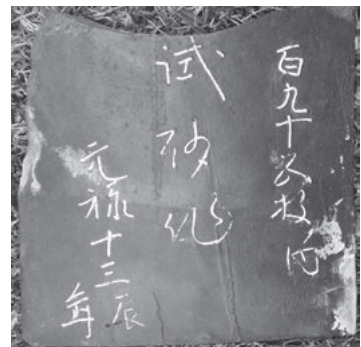 百九十枚内
試砂
元禄十三辰
年